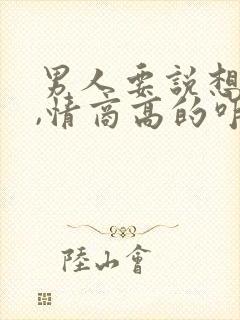 男人要說想
,情商高的咋
陸山會